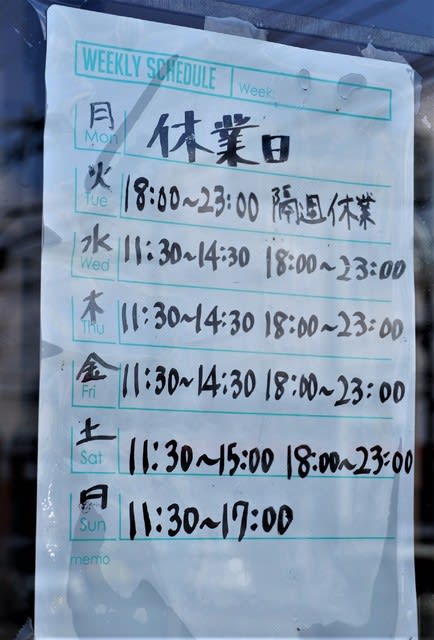 WEEKLY SCHEDULE Week:
月 Mon 休業日
火 Tue 18:00~23:00 隔週休業
水 Wed 11:30~14:30 18:00~23:00
木 Thu 11:30~14:30 18:00~23:00
金 Fri 11:30~14:30 18:00~23:00
土 Sat 11:30~15:00 18:00~23:00
日 Sun 11:30~17:00
memo